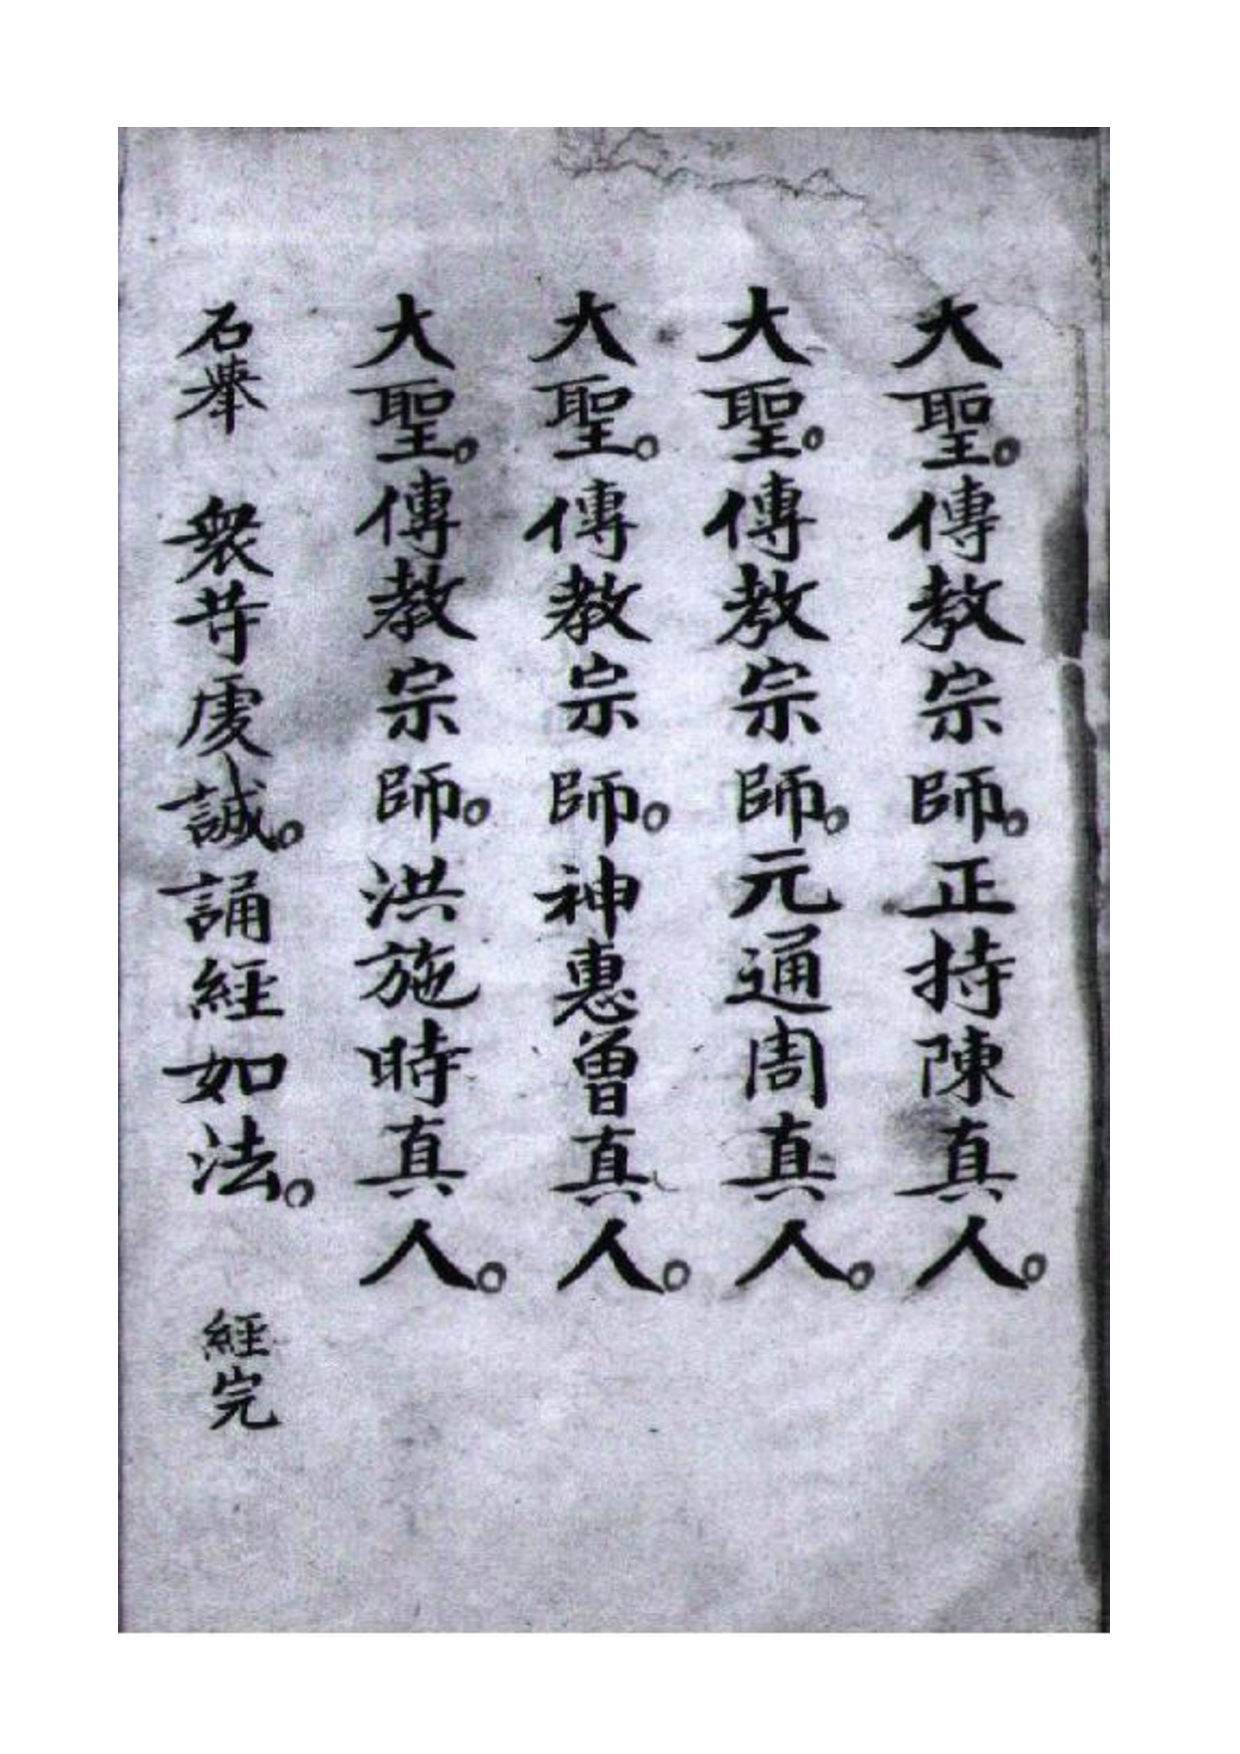 大聖。傳教宗師。正持陳真人。
大聖。傳教宗師。元通周真人。
大聖。傳教宗師。神惠曾真人。
大聖。傳教宗師。洪施時真人。
石舉 衆苛虔誠。誦經如法。 經完